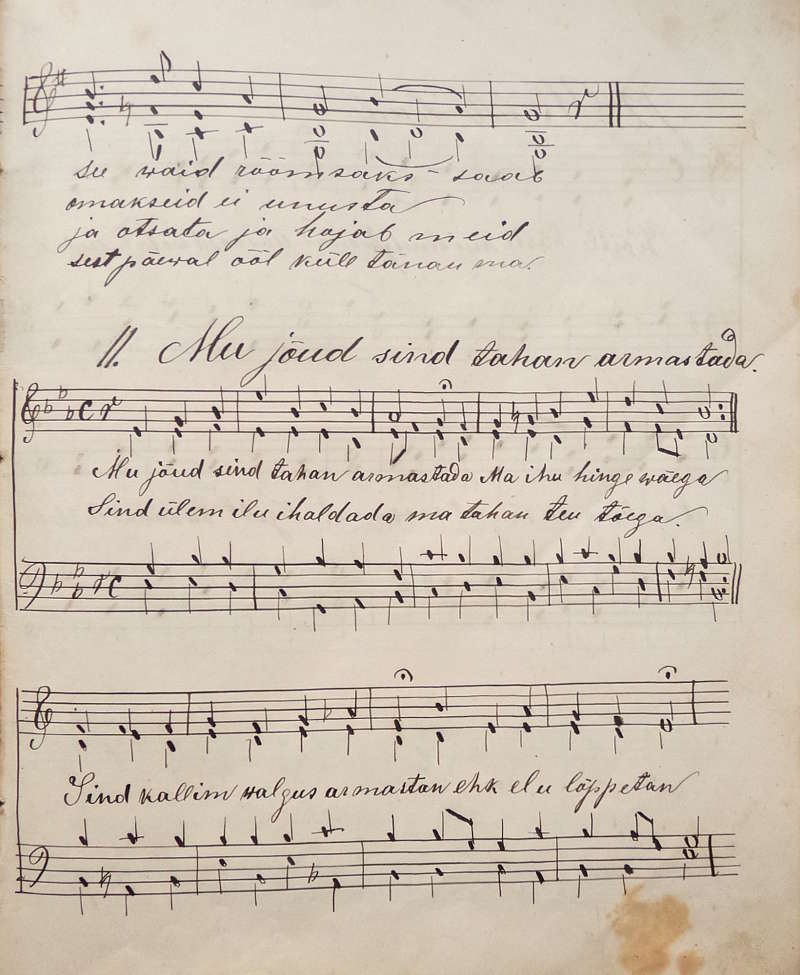 su waid rõõmsaks - saab
omakseid ei unusta
ja otsata ja hojab meid
sest päewal ööl küll tänan ma.
11. Mu jõud sind tahan armastada.
Mu jõud sind tahan armastada Ma ihu hinge wäega
Sind ülem ilu ihaldada ma tahan teu tõega.
Sind kallim walgus armastan ehk elu lõppetan